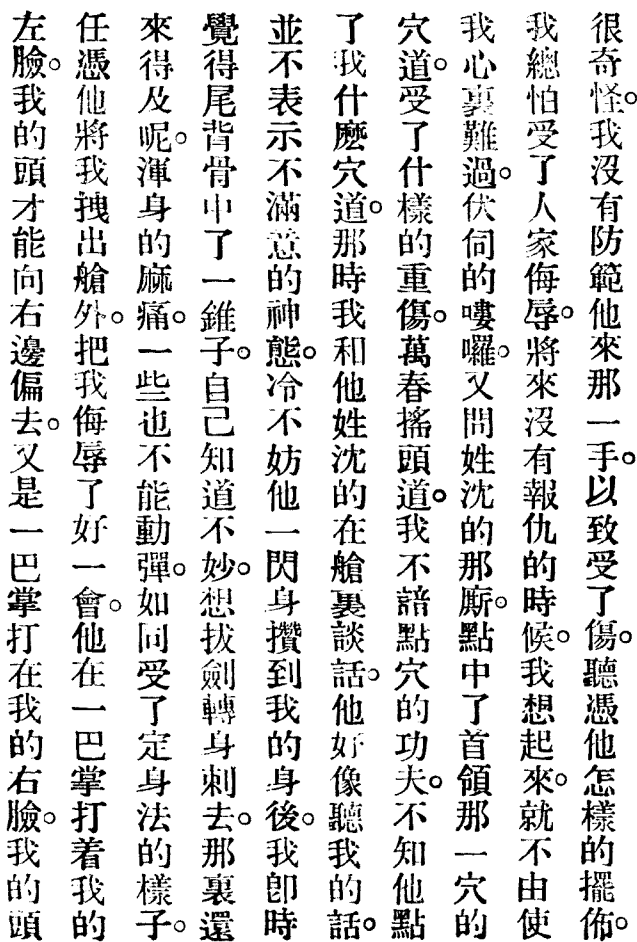 很奇怪。我沒有防範他來那一手。以致受了傷。聽憑他怎樣的擺佈。
我總怕受了人家侮辱。將來沒有報仇的時候。我想起來。就不由使
我心裏難過。伏伺的嘍囉。又問姓沈的那厮。點中了首領那一穴的
穴道。受了什樣的重傷。萬春搖頭道。我不諳點穴的功夫。不知他點
了我什麽穴道。那時我和他姓沈的在艙裏談話。他好像聽我的話。
並不表示不滿意的神態。冷不妨他一閃身攢到我的身後。我卽時
覺得尾背骨中了一錐子。自己知道不妙。想拔劍轉身刺去。那裏還
來得及呢。渾身的麻痛。一些也不能動彈。如同受了定身法的樣子。
任憑他將我拽出艙外。把我侮辱了好一會。他在一巴掌打着我的
左臉。我的頭才能向右邊偏去。又是一巴掌打在我的右臉。我的頭